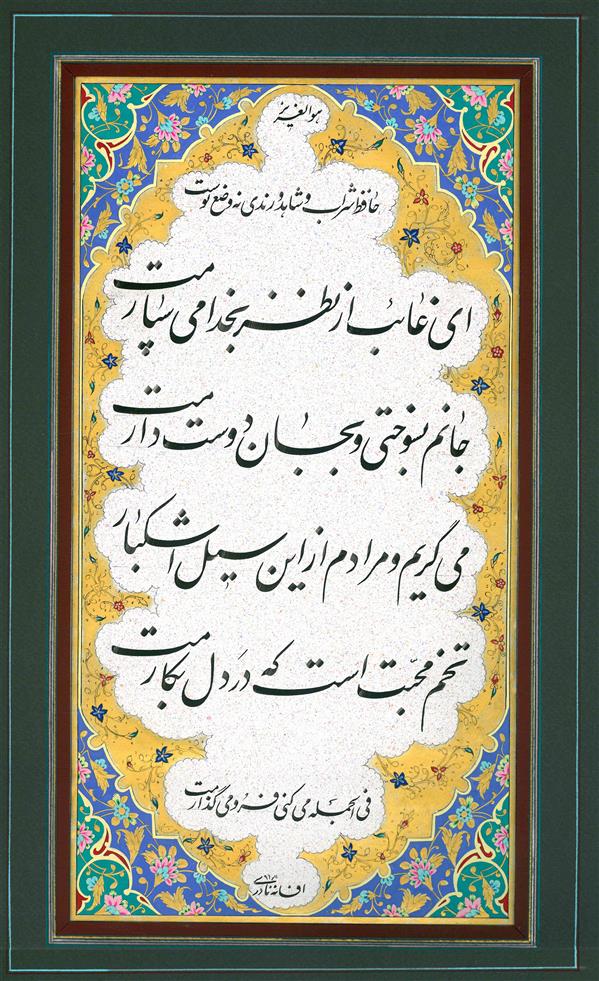 هوالعزیز
حافظ شراب و شاهد و رندی نه وضع توست
ای غایب از نظر بخدا می سپارمت
جانم بسوختی و بجان دوست دارمت
می گریم و مرادم از این سیل اشکبار
تخم محبت است که در دل بکارمت
فی الجمله می کنی و فرو می گذارمت
نادری